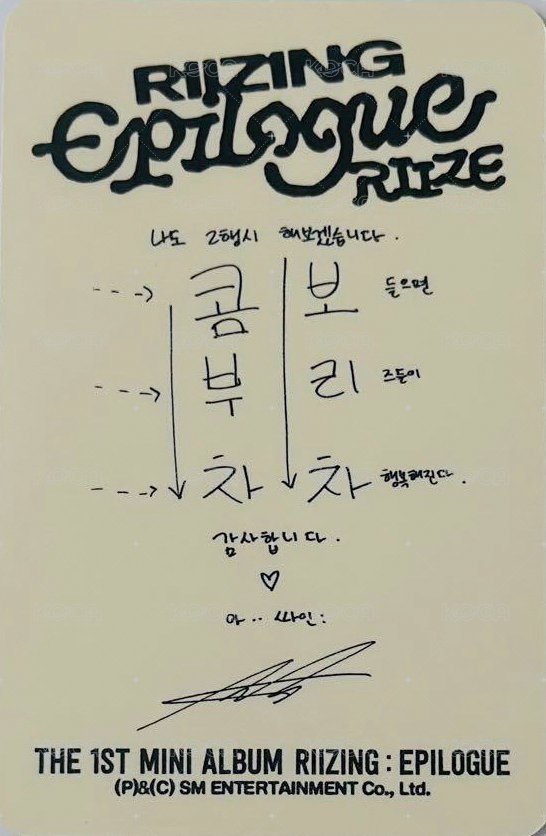 RIIZING
Epilogue
RIIZE
나도 2행시 해보겠습니다.
콤 보 들으면
부 리 즈들이
차 차 행복해진다.
감사합니다.
♡
아.. 싸인:
THE 1ST MINI ALBUM RIIZING : EPILOGUE
(P)&(C) SM ENTERTAINMENT Co., Ltd.